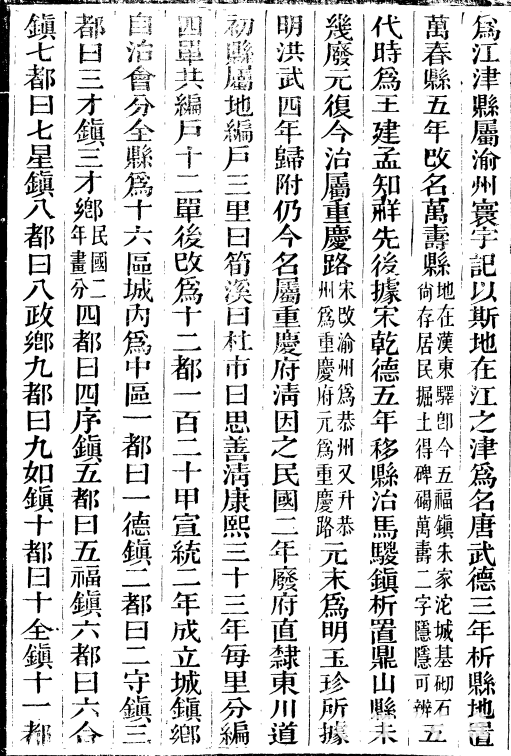 爲江津縣屬渝州寰宇記以斯地在江之津爲名唐武德三年析縣地置
萬春縣五年改名萬壽縣地在漢東驛卽今五福鎭朱家沱城基砌石尙存居民掘土得碑碣萬壽二字隱隱可辨五
代時爲王建孟知祥先後據宋乾德五年移縣治馬騣鎭析置鼎山縣未
幾廢元復今治屬重慶路宋改渝州爲恭州又升恭州爲重慶府元爲重慶路元末爲明玉珍所據
明洪武四年歸附仍今名屬重慶府淸因之民國二年廢府直隸東川道
初縣屬地編戶三里曰筍溪曰杜市曰思善淸康熙三十三年每里分編
四單共編戶十二單後改爲十二都一百二十甲宣統二年成立城鎭鄕
自治會分全縣爲十六區城內爲中區一都曰一德鎭二都曰二守鎭三
都曰三才鎭三才鄕民國二年畫分四都曰四序鎭五都曰五福鎭六都曰六合
鎭七都曰七星鎭八都曰八政鄕九都曰九如鎭十都曰十全鎭十一都